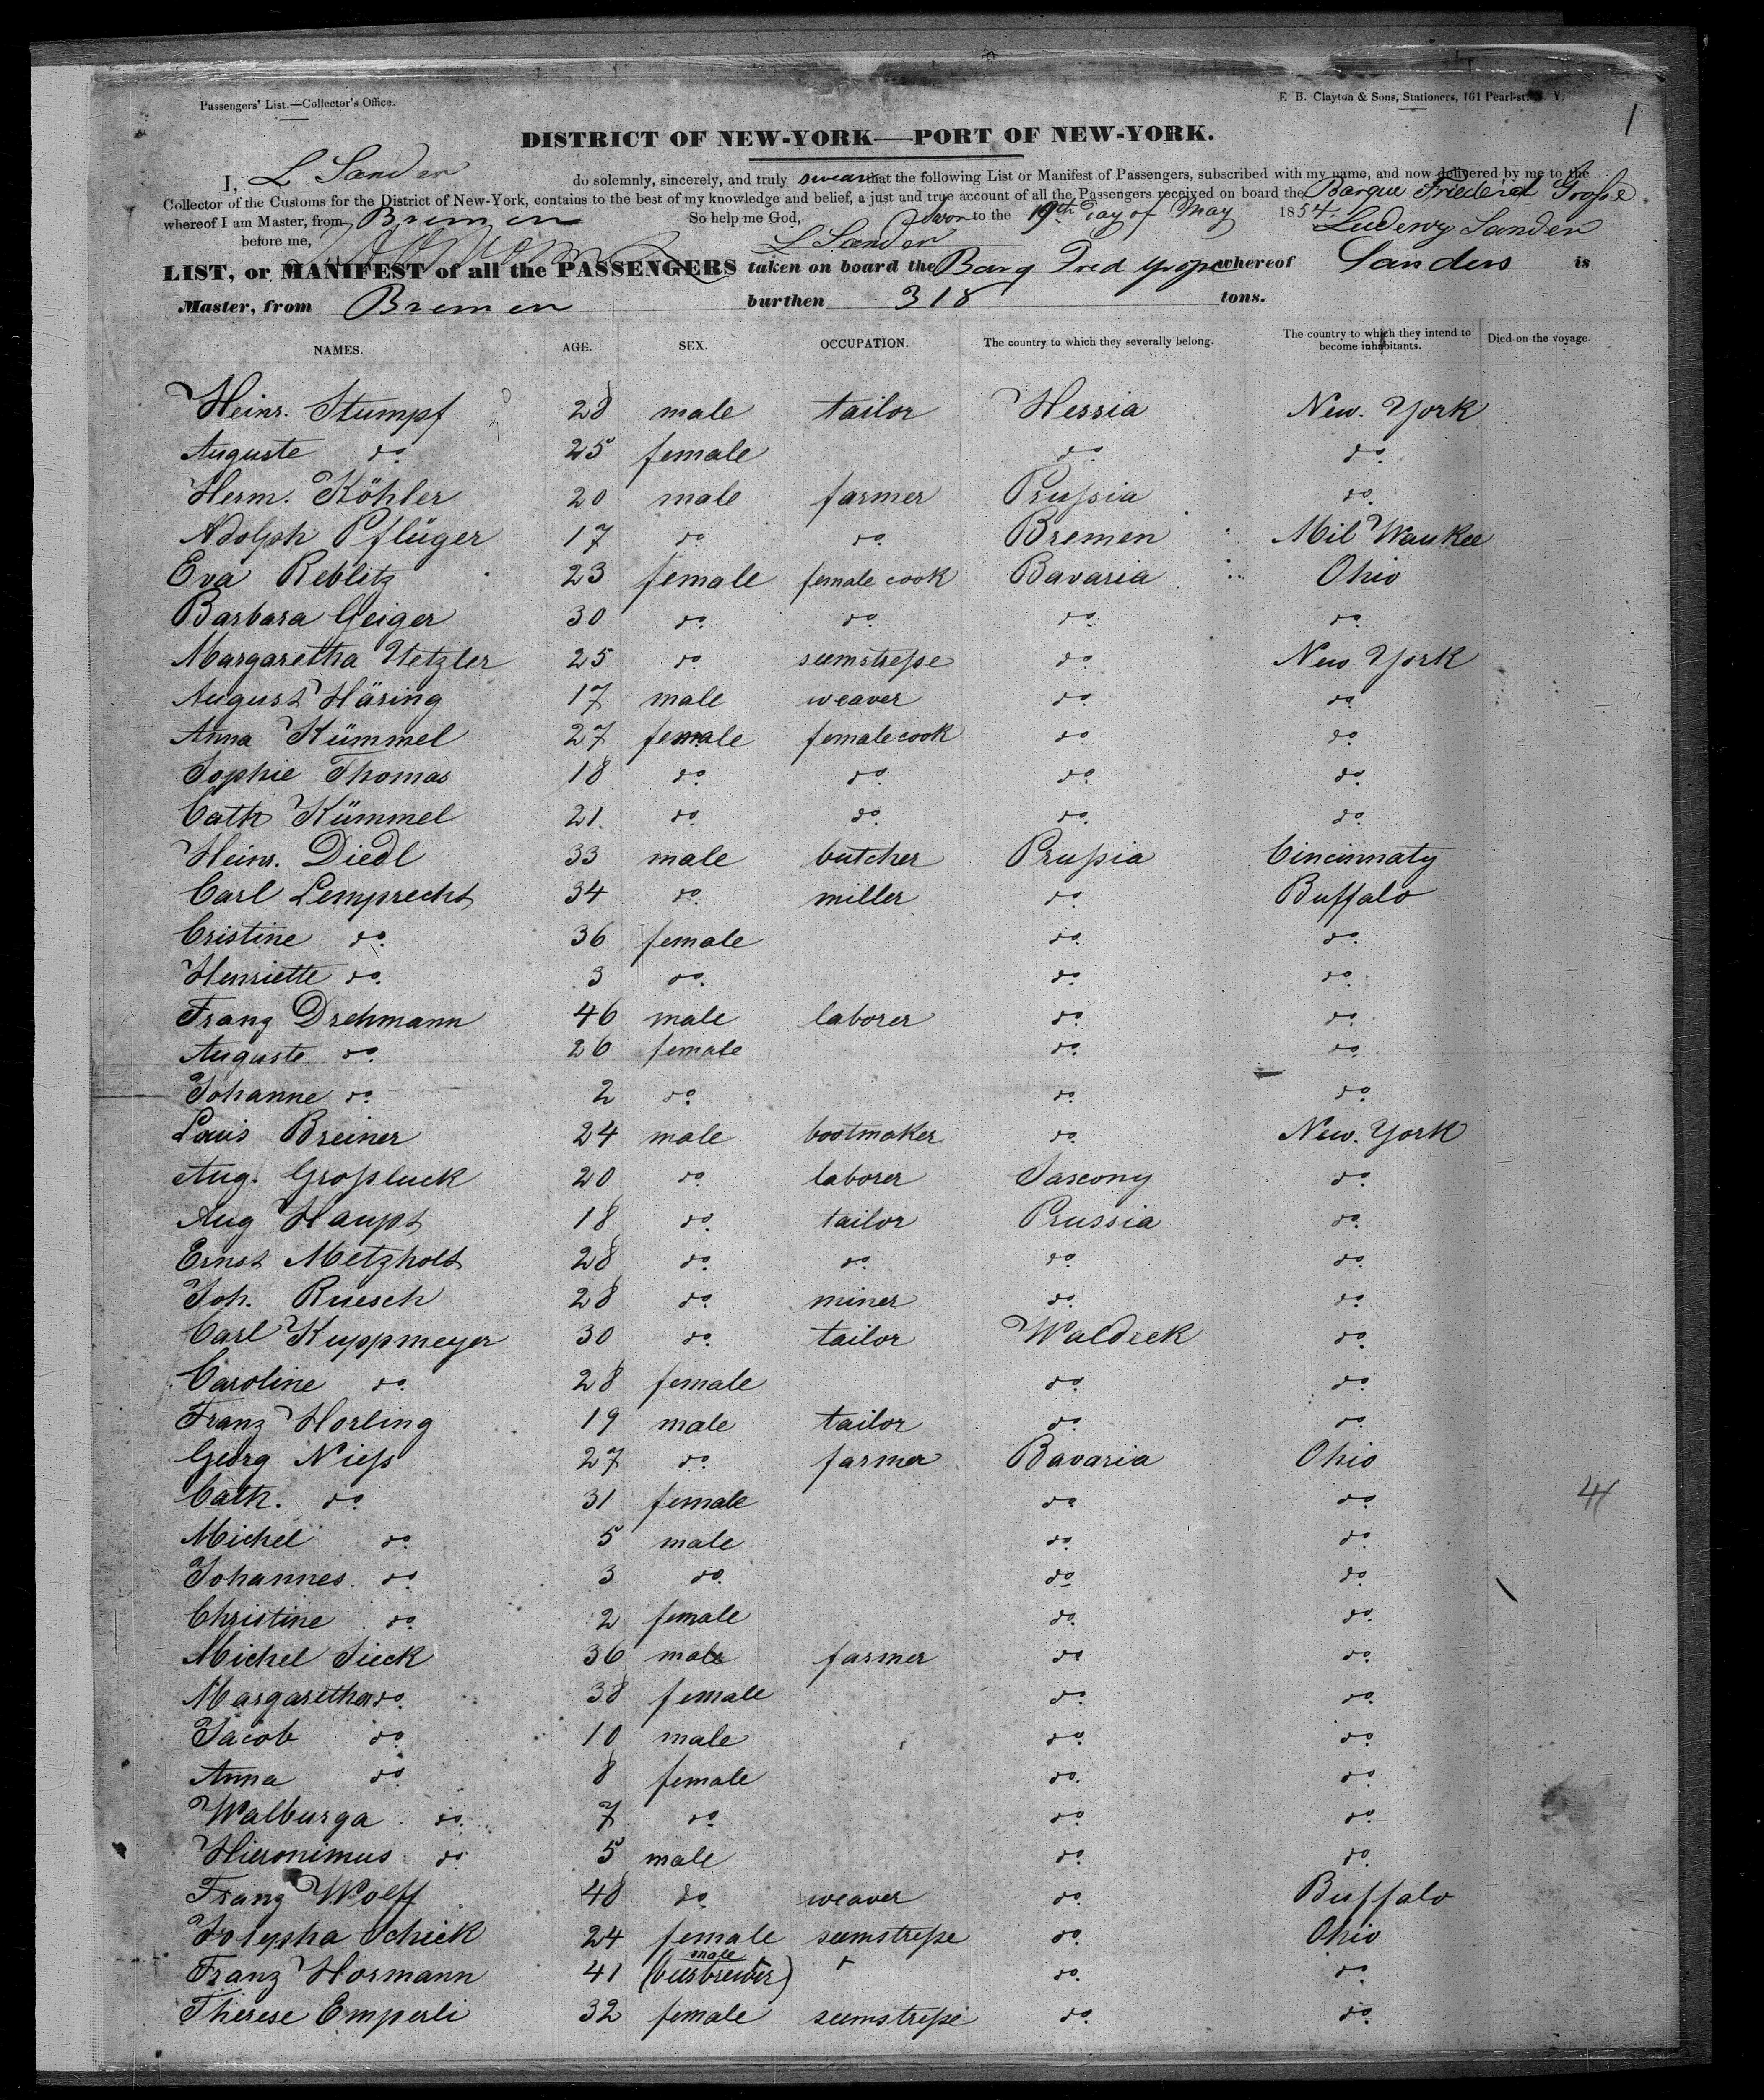 Passengers' List.—Collector's Office.
E. B. Clayton & Sons, Stationers, 161 Pearl-st. N. Y.
1
DISTRICT OF NEW-YORK—PORT OF NEW-YORK.
I, L Sander do solemnly, sincerely, and truly swear that the following List or Manifest of Passengers, subscribed with my name, and now delivered by me to the
Collector of the Customs for the District of New-York, contains to the best of my knowledge and belief, a just and true account of all the Passengers received on board the Barque Friederich Große
whereof I am Master, from Bremen So help me God, Sworn to the 19th Day of May 1854. Ludewig Sander
before me, L Sander
LIST, or MANIFEST of all the PASSENGERS taken on board the Barq Fred Große whereof Sanders is
Master, from Bremen burthen 318 tons.
NAMES. AGE. SEX. OCCUPATION. The country to which they severally belong. The country to which they intend to become inhabitants. Died on the voyage.
Heinr. Stumpf 28 male tailor Hessia New. York
Auguste do. 25 female do. do.
Herm. Köhler 20 male farmer Prußia do.
Adolph Pflüger 17 do. do. Bremen Mil Waukee
Eva Reblitz 23 female female cook Bavaria Ohio
Barbara Geiger 30 do. do. do. do.
Margaretha Uetzler 25 do. seemstreße do. New York
August Häring 17 male weaver do. do.
Anna Kümmel 27 female female cook do. do.
Sophie Thomas 18 do. do. do. do.
Cath Kümmel 21. do. do. do. do.
Heinr. Diedl 33 male butcher Prußia Cincinnaty
Carl Lemprecht 34 do. miller do. Buffalo
Cristine do. 36 female do. do.
Henriette do. 3 do. do. do.
Franz Drehmann 46 male laborer do. do.
Auguste do. 26 female do. do.
Johanne do. 2 do. do. do.
Louis Breiner 24 male bootmaker do. New. York
Aug. Großluck 20 do. laborer Sascony do.
Aug Haupt 18 do. tailor Prussia do.
Ernst Metzholt 28 do. do. do. do.
Joh. Ruesch 28 do. miner do. do.
Carl Kuppmeyer 30 do. tailor Waldeck do.
Caroline do. 28 female do. do.
Franz Horling 19 male tailor do. do.
Georg Nieß 27 do. farmer Bavaria Ohio
Cath. do. 31 female do. do.
Michel do. 5 male do. do.
Johannes do. 3 do. do. do.
Christine do. 2 female do. do.
Michel Sieck 36 male farmer do. do.
Margaretha do. 38 female do. do.
Jacob do. 10 male do. do.
Anna do. 8 female do. do.
Walburga do. 7 do. do. do.
Hieronimus do. 5 male do. do.
Franz Wolff 48 do. weaver do. Buffalo
Schick 24 female seemstreße do. Ohio
Franz Hormann 41 male (beerbrewer) do. do.
Therese Emperli 32 female seemstreße do. do.